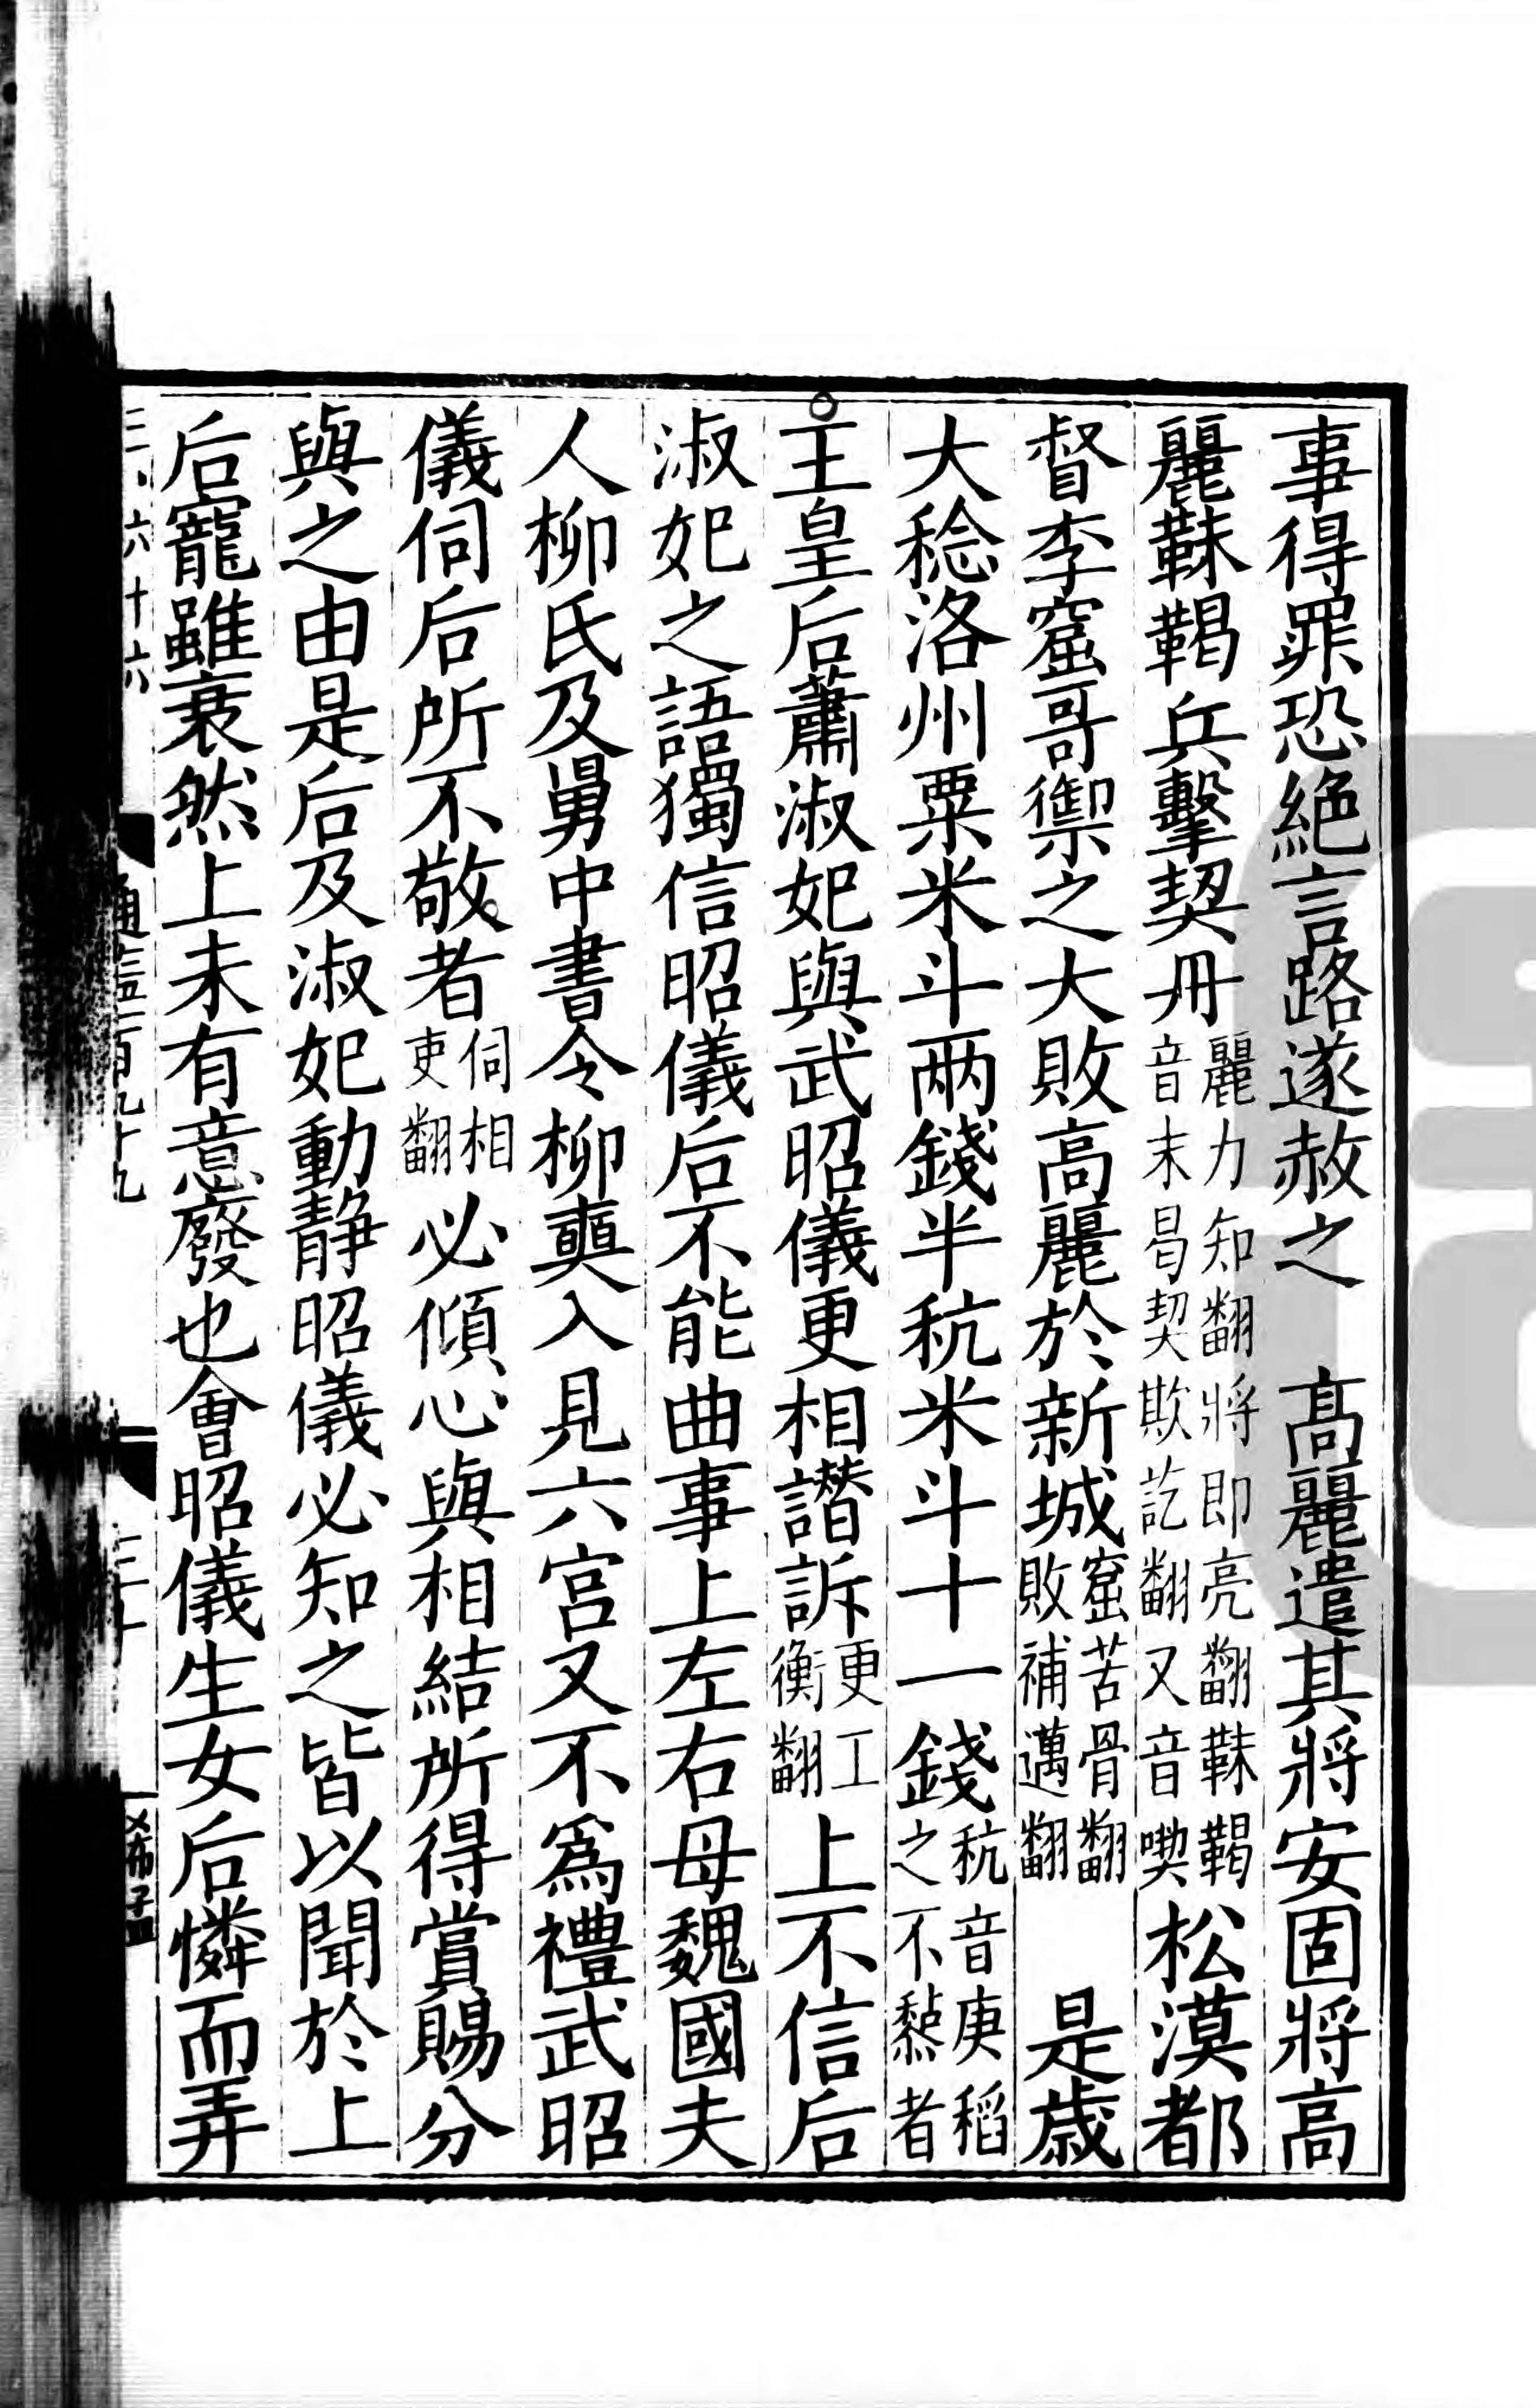 事得罪恐絶言路遂赦之　高麗遣其將安固將高
麗靺鞨兵擊契丹麗力知翻將即亮翻靺鞨音末曷契欺訖翻又音喫松漠都
督李窟哥禦之大敗高麗於新城窟苦骨翻敗補邁翻　是歲
大稔洛州粟米斗兩錢半秔米斗十一錢秔音庚稻之不黏者
○王皇后蕭淑妃與武昭儀更相譖訴更工衡翻上不信后
淑妃之語獨信昭儀后不能曲事上左右母魏國夫
人柳氏及舅中書令柳奭入見六宮又不爲禮武昭
儀伺后所不敬者伺相吏翻必傾心與相結所得賞賜分
與之由是后及淑妃動靜昭儀必知之皆以聞於上
后寵雖衰然上未有意廢也會昭儀生女后憐而弄
通鑑一百九十九